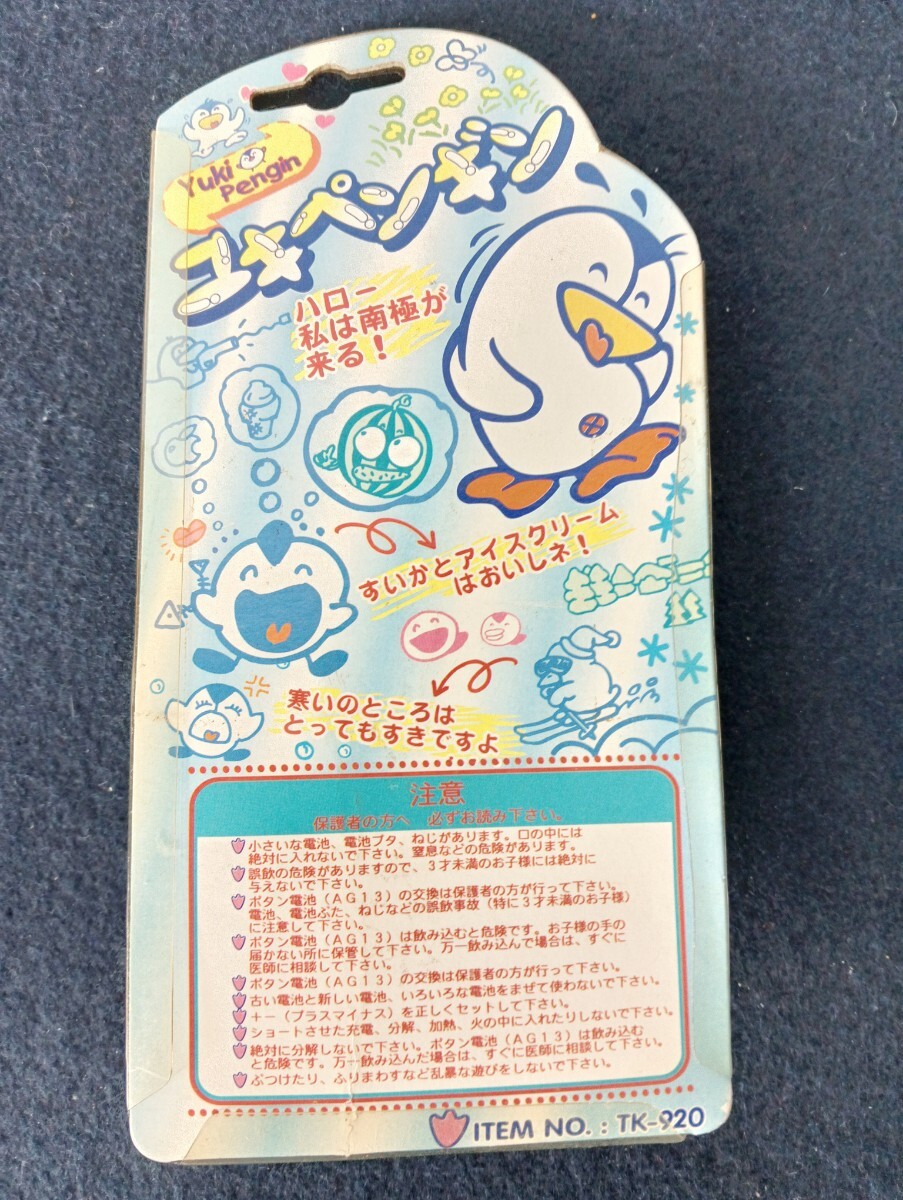 Yuki
Pengin
ユキペンギン
ハロー
私は南極が
来る！
すいかとアイスクリーム
はおいしネ！
寒いのところは
とってもすきですよ
注意
保護者の方へ 必ずお読み下さい。
小さいな電池、電池ブタ、ねじがあります。口の中には
絶対に入れないで下さい。窒息などの危険があります。
誤飲の危険がありますので、3才未満のお子様には絶対に
与えないで下さい。
ボタン電池（AG13）の交換は保護者の方が行って下さい。
電池、電池ぶた、ねじなどの誤飲事故（特に3才未満のお子様）
に注意して下さい。
ボタン電池（AG13）は飲み込むと危険です。お子様の手の
届かない所に保管して下さい。万一飲み込んで場合は、すぐに
医師に相談して下さい。
ボタン電池（AG13）の交換は保護者の方が行って下さい。
古い電池と新しい電池、いろいろな電池をまぜて使わないで下さい。
+－（プラスマイナス）を正しくセットして下さい。
ショートさせた充電、分解、加熱、火の中に入れたりしないで下さい。
絶対に分解しないで下さい。ボタン電池（AG13）は飲み込む
と危険です。万一飲み込んだ場合は、すぐに医師に相談して下さい。
ぶつけたり、ふりまわすなど乱暴な遊びをしないで下さい。
ITEM NO. : TK-920